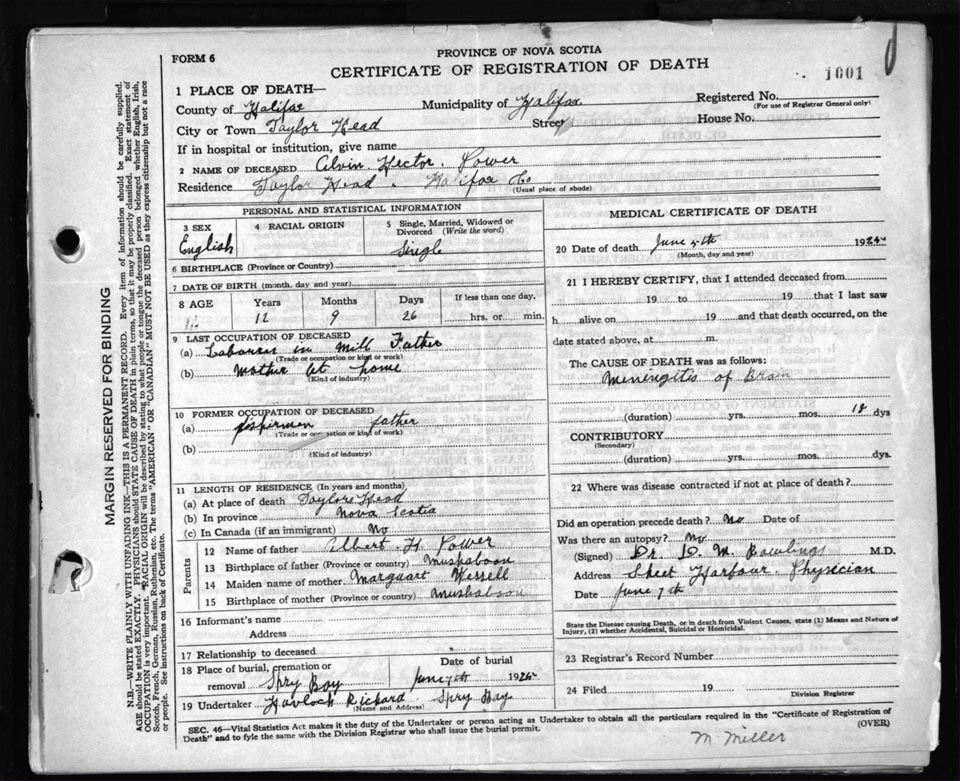 PROVINCE OF NOVA SCOTIA
FORM 6
CERTIFICATE OF REGISTRATION OF DEATH
1001
1 PLACE OF DEATH—
County of Halifax Municipality of Halifax Registered No.
(For use of Registrar General only)
City or Town Taylor Head Street House No.
If in hospital or institution, give name
2 NAME OF DECEASED Alvin Hector. Power
Residence Taylor Head. Halifax Co
(Usual place of abode)
PERSONAL AND STATISTICAL INFORMATION
3 SEX 4 RACIAL ORIGIN 5 Single, Married, Widowed or Divorced (Write the word)
English Single
6 BIRTHPLACE (Province or Country)
7 DATE OF BIRTH (month, day and year)
8 AGE Years Months Days If less than one day,
12 9 26 hrs. or min.
9 LAST OCCUPATION OF DECEASED
(a) Labourer in Mill Father
(Trade or occupation or kind of work)
(b) Mother at home
(Kind of industry)
10 FORMER OCCUPATION OF DECEASED
(a) fisherman father
(Trade or occupation or kind of work)
(b)
(Kind of industry)
11 LENGTH OF RESIDENCE (In years and months)
(a) At place of death Taylors Head
(b) In province Nova Scotia
(c) In Canada (if an immigrant) No
Parents
12 Name of father Albert H. Power
13 Birthplace of father (Province or country) Mushaboon
14 Maiden name of mother Marguart
15 Birthplace of mother (Province or country) Mushaboon
16 Informant's name
Address
17 Relationship to deceased
18 Place of burial, cremation or Date of burial
removal Spry Bay June 7th 192
19 Undertaker Havloch Rickard Spry Bay
(Name and Address)
MEDICAL CERTIFICATE OF DEATH
20 Date of death June 5th 192
(Month, day and year)
21 I HEREBY CERTIFY, that I attended deceased from
19 to 19 that I last saw
h alive on 19 and that death occurred, on the
date stated above, at m.
The CAUSE OF DEATH was as follows:
Meningitis of Brain
(duration) yrs. mos. 12 dys
CONTRIBUTORY
(Secondary)
(duration) yrs. mos. dys.
22 Where was disease contracted if not at place of death?
Did an operation precede death? No Date of
Was there an autopsy? No
(Signed) Dr. D. M. Rowlings M.D.
Address Sheet Harbour. Physician
Date June 7th
State the Disease causing Death, or in death from Violent Causes, state (1) Means and Nature of
Injury, (2) whether Accidental, Suicidal or Homicidal.
23 Registrar's Record Number
24 Filed 19
Division Registrar
SEC. 46—Vital Statistics Act makes it the duty of the Undertaker or person acting as Undertaker to obtain all the particulars required in the "Certificate of Registration of
Death" and to fyle the same with the Division Registrar who shall issue the burial permit. (OVER)
M. Miller
MARGIN RESERVED FOR BINDING
N.B.—WRITE PLAINLY WITH UNFADING INK—THIS IS A PERMANENT RECORD. Every item of information should be carefully supplied.
AGE should be stated EXACTLY. PHYSICIANS should STATE CAUSE OF DEATH in plain terms, so that it may be properly classified. Exact statement of
OCCUPATION is very important. RACIAL ORIGIN will be described by stating to what people or tongue the deceased person belonged whether English, Irish,
Scotch, French, German, Russian, Ruthenian, etc. The terms "AMERICAN" OR "CANADIAN" MUST NOT BE USED as they express citizenship but not a race
or people. See instructions on back of Certificate.